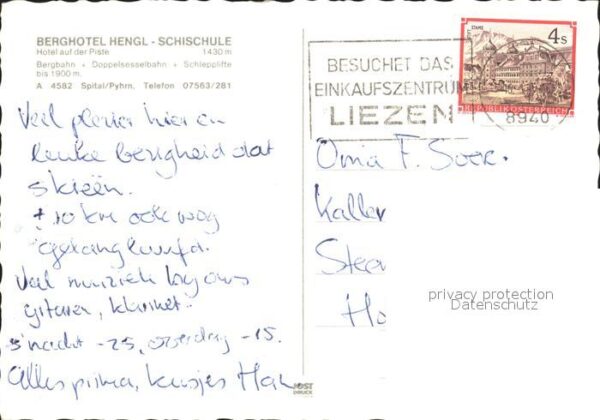 BERGHOTEL HENGL - SCHISCHULE
Hotel auf der Piste 1430 m
Bergbahn + Doppelsesselbahn + Schlepplifte
bis 1900 m.
A 4582 Spital/Pyhrn, Telefon 07563/281
4s
STAMS
REPUBLIK ÖSTERREICH
BESUCHET DAS
EINKAUFSZENTRUM
LIEZEN
8940
Veel plezier hier en
leuke bezigheid dat
skieën.
± 10 km ook nog
gelanglaufd.
Veel muziek bij ons
gitaren, klarinet.
's nachts -25, overdag -15.
Alles prima, kusjes Han
Oma F. Soer.
Kaller
Steen
Ho
privacy protection
Datenschutz
POST
DRUCK